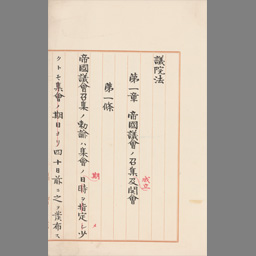 議院法
第一章 帝國議會ノ召集成立及開會
第一條
帝國議會召集ノ勅諭ハ集會ノ期日ヲ指定シ少
クトモ集會ノ期日ヨリ四十日前ニ之ヲ發布ス